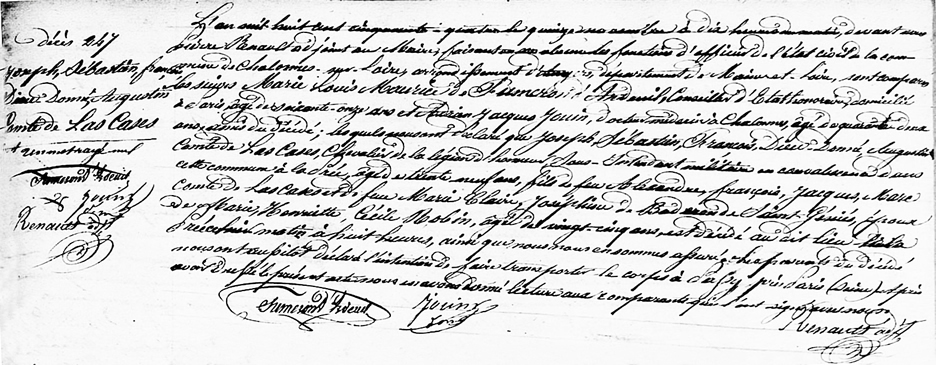 décès 247
Joseph, Sébastien, françois
Dieu Donné, Augustin
Comte de Las Cases
Jouin
Renault adjt
L'an mil huit cent cinquante-quatre le quinze novembre à dix heures du matin, devant nous
Pierre Renault adjoint au Maire, faisant en son absence les fonctions d'officier de l'état civil de la com-
mune de Chalonnes-sur-Loire, arrondissement d'Angers, département de Maine et Loire, sont comparus
les sieurs Marie Louis Maurice Conseiller d'Etat honoraire, domicilié
à Paris, âgé de soixante-onze ans et Adrien Jacques Jouin, docteur médecin à Chalonnes, âgé de quarante deux
ans, amis du décédé; lesquels nous ont déclaré que Joseph, Sébastien, François, Dieu-Donné, Augustin
Comte de Las Cases, Chevalier de la légion d'honneur, Sous-Intendant militaire en
cette commune à la âgé de trente neuf ans, fils de feu Alexandre, françois, Jacques, Marc
Comte de Las Cases et de feu Marie Claire, Joséphine de de Saint-Géniès, époux
de Marie, Henriette, Cécile Mobin, âgée de vingt cinq ans, est décédé au dit lieu de la
Prée ce jour matin à huit heures, ainsi que nous nous en sommes assuré; les comparants du décédé
nous ont aussitôt déclaré l'intention de faire transporter le corps à près Paris (Seine) et après
avoir le présent acte nous en avons donné lecture aux comparants qui l'ont signé avec nous
Jouin
Renault adjt